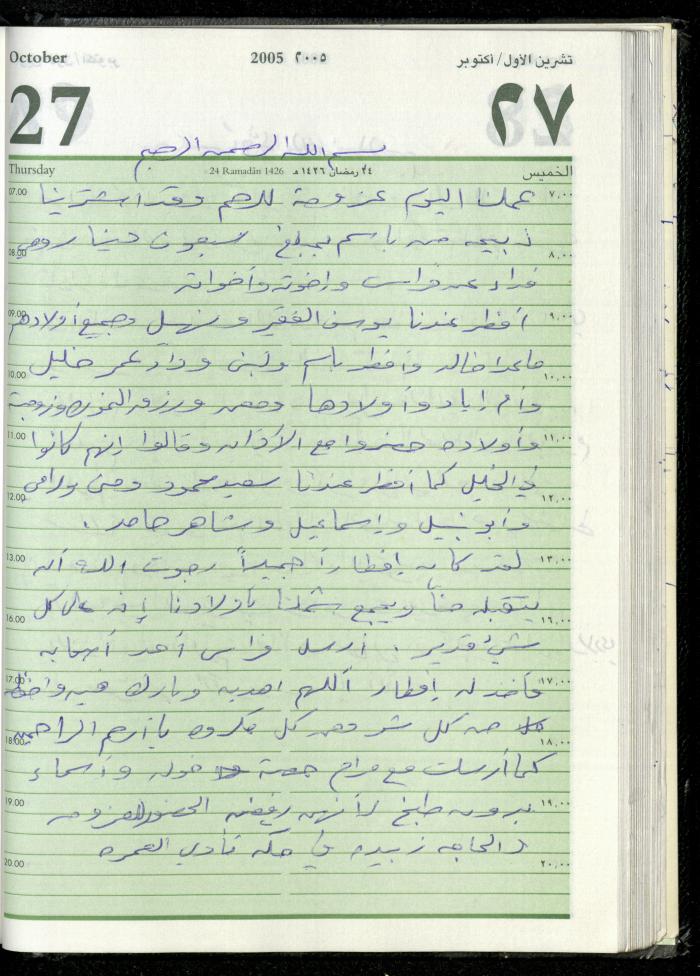 October 2005 ٢٠٠٥ تشرين الأول/أكتوبر
27 ٢٧
بسم الله الرحمن الرحيم
Thursday 24 Ramadân 1426 ٢٤ رمضان ١٤٢٦ هـ الخميس
07.00 عملنا اليوم عزومة للرحم وقد اشترينا ٧,٠٠
08.00 ذبيحه من باسم بمبلغ سبعون دينار وهي ٨,٠٠
فداء عن فراس واخوته وأخواته
09.00 أفطر عندنا يوسف الفقير ونهيل وجميع أولادهم ٩,٠٠
10.00 ماعدا خالد وأفطر باسم ولبنى ووالد عمر خليل ١٠,٠٠
وأم إياد وأولادها ورزق وزوجته
11.00 وأولاده حضروا مع الأذان وقالوا إنهم كانوا ١١,٠٠
12.00 في الخليل كما أفطر عندنا سعيد محمود ورامي ١٢,٠٠
وأبو نبيل وإسماعيل وشاهر حامد .
13.00 لقد كان إفطاراً جميلاً رجوت الله أن ١٣,٠٠
16.00 يتقبله منا ويجمع شملنا بأولادنا إنه على كل ١٦,٠٠
شيء قدير . أرسل فراس أحد أصحابه
17.00 فأخذ له إفطار أللهم اهديه وبارك فيه واحفظه ١٧,٠٠
18.00 من كل شر ومن كل مكروه يا أرحم الراحمين ١٨,٠٠
كما أرسلت مع مرام حصة خوله وأسماء
19.00 بدون طبخ لأنهن رفضن الحضور للعزومه ١٩,٠٠
20.00 والحاجه زبيده في مكه تأدي العمره ٢٠,٠٠